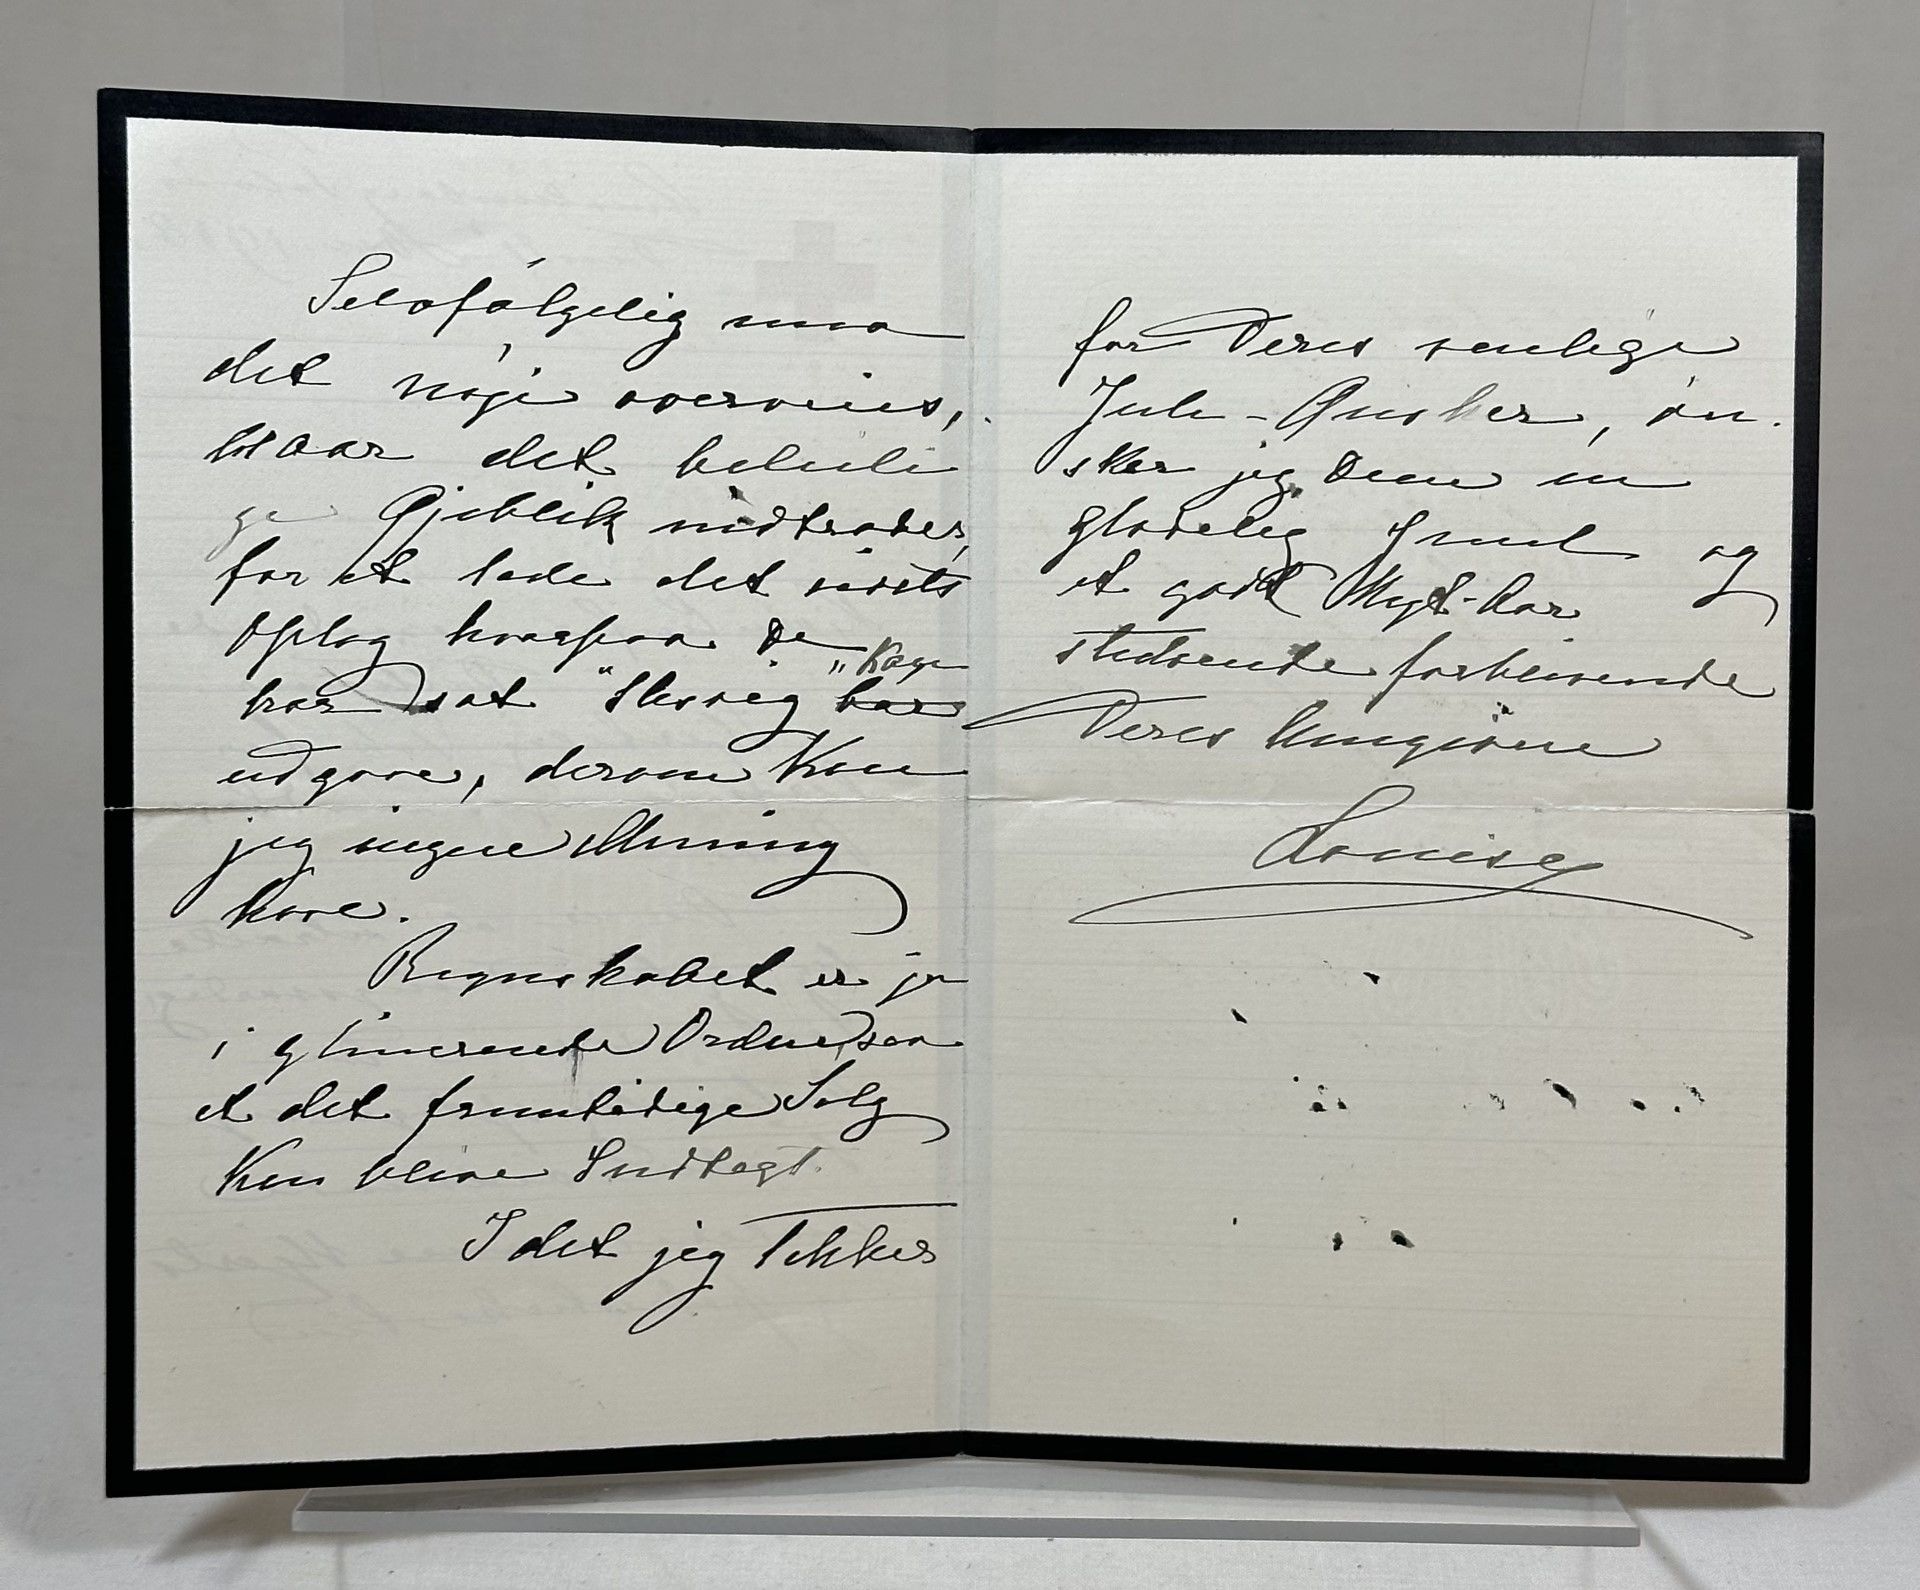 Selvfölgelig maa
det nöje overveies,
naar det beleili
ge Øjeblik indtræder,
for at lade det næste
Oplag hvorpaa De
har sat "Slesvig" Kage
udgaae, derom Kan
jeg ingen Mening
have.
Regnskabet er jo
i glimerende Orden, saa
at det fremtidige Salg
Kun blive Indtægt.
I det jeg Takker
for Deres venlige
Jule-Ønsker, ön-
sker jeg Dem en
glædelig Juul og
et godt Nyt-Aar
stedsende forblivende
Deres hengivne
Louise